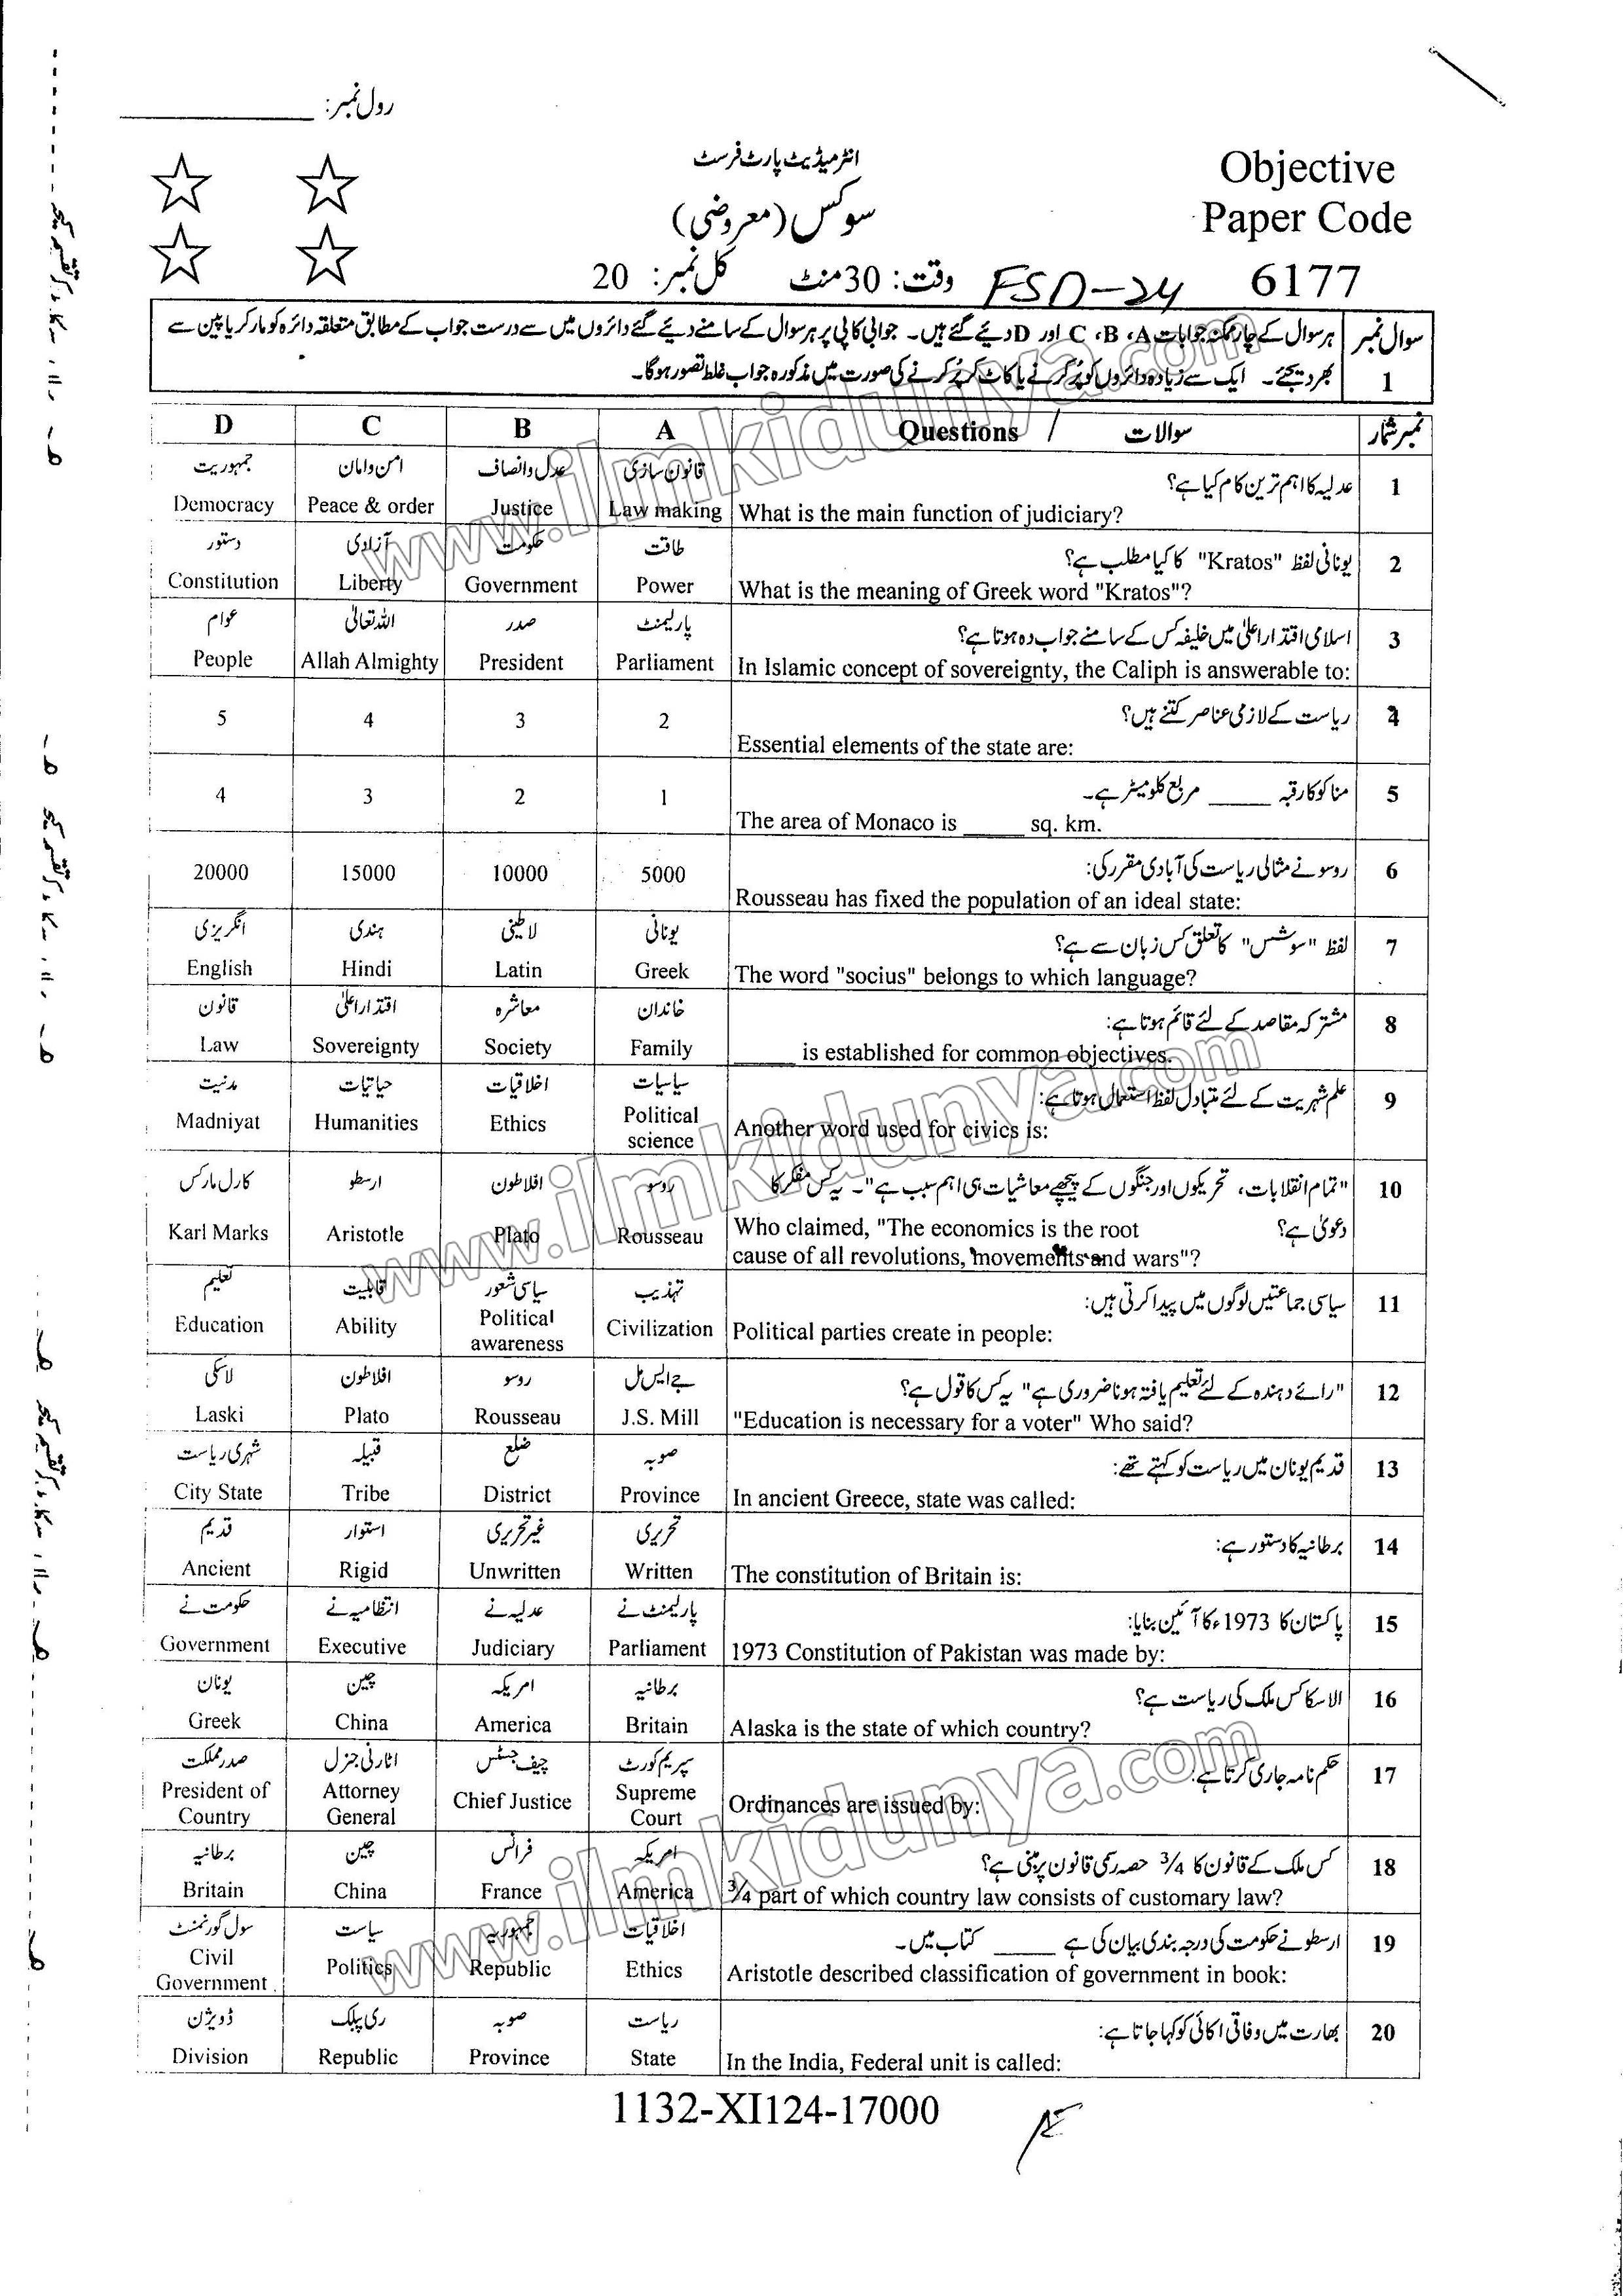 رول نمبر:
انٹرمیڈیٹ پارٹ فرسٹ
Objective
سوکس (معروضی)
Paper Code
وقت: 30 منٹ کل نمبر: 20
FSD-24
6177
سوال نمبر 1
ہر سوال کے چار ممکنہ جوابات A، B، C اور D دیئے گئے ہیں۔ جوابی کاپی پر ہر سوال کے سامنے دیئے گئے دائروں میں سے درست جواب کے مطابق متعلقہ دائرہ کو مارکر یا پین سے
بھر دیجئے۔ ایک سے زیادہ دائروں کو پُر کرنے یا کاٹ کر پُر کرنے کی صورت میں مذکورہ جواب غلط تصور ہوگا۔
D C B A Questions / سوالات نمبر شمار
1 عدلیہ کا اہم ترین کام کیا ہے؟
What is the main function of judiciary?
قانون سازی عدل و انصاف امن و امان جمہوریت
Democracy Peace & order Justice Law making
2 یونانی لفظ "Kratos" کا کیا مطلب ہے؟
What is the meaning of Greek word "Kratos"?
طاقت حکومت آزادی دستور
Constitution Liberty Government Power
3 اسلامی اقتدار اعلیٰ میں خلیفہ کس کے سامنے جواب دہ ہوتا ہے؟
In Islamic concept of sovereignty, the Caliph is answerable to:
پارلیمنٹ صدر اللہ تعالیٰ عوام
People Allah Almighty President Parliament
4 ریاست کے لازمی عناصر کتنے ہیں؟
Essential elements of the state are:
5 4 3 2
5 مناکو کا رقبہ _____ مربع کلومیٹر ہے۔
The area of Monaco is _____ sq. km.
4 3 2 1
6 روسو نے مثالی ریاست کی آبادی مقرر کی:
Rousseau has fixed the population of an ideal state:
20000 15000 10000 5000
7 لفظ "سوشس" کا تعلق کس زبان سے ہے؟
The word "socius" belongs to which language?
یونانی لاطینی ہندی انگریزی
English Hindi Latin Greek
8 مشترکہ مقاصد کے لئے قائم ہوتا ہے:
_____ is established for common objectives.
خاندان معاشرہ اقتدار اعلیٰ قانون
Law Sovereignty Society Family
9 علم شہریت کے لئے متبادل لفظ استعمال ہوتا ہے:
Another word used for civics is:
سیاسیات اخلاقیات حیاتیات مدنیت
Madniyat Humanities Ethics Political science
10 "تمام انقلابات، تحریکوں اور جنگوں کے پیچھے معاشیات ہی اہم سبب ہے"۔ یہ کس مفکر کا
دعویٰ ہے؟
Who claimed, "The economics is the root
cause of all revolutions, movements and wars"?
روسو افلاطون ارسطو کارل مارکس
Karl Marks Aristotle Plato Rousseau
11 سیاسی جماعتیں لوگوں میں پیدا کرتی ہیں:
Political parties create in people:
تہذیب سیاسی شعور قابلیت تعلیم
Education Ability Political awareness Civilization
12 "رائے دہندہ کے لئے تعلیم یافتہ ہونا ضروری ہے" یہ کس کا قول ہے؟
"Education is necessary for a voter" Who said?
جے ایس مل روسو افلاطون لاسکی
Laski Plato Rousseau J.S. Mill
13 قدیم یونان میں ریاست کو کہتے تھے:
In ancient Greece, state was called:
صوبہ ضلع قبیلہ شہری ریاست
City State Tribe District Province
14 برطانیہ کا دستور ہے:
The constitution of Britain is:
تحریری غیر تحریری استوار قدیم
Ancient Rigid Unwritten Written
15 پاکستان کا 1973ء کا آئین بنایا:
1973 Constitution of Pakistan was made by:
پارلیمنٹ نے عدلیہ نے انتظامیہ نے حکومت نے
Government Executive Judiciary Parliament
16 الاسکا کس ملک کی ریاست ہے؟
Alaska is the state of which country?
برطانیہ امریکہ چین یونان
Greek China America Britain
17 حکم نامہ جاری کرتا ہے:
Ordinances are issued by:
سپریم کورٹ چیف جسٹس اٹارنی جنرل صدر مملکت
President of Country Attorney General Chief Justice Supreme Court
18 کس ملک کے قانون کا ¾ حصہ رسمی قانون پر مبنی ہے؟
¾ part of which country law consists of customary law?
امریکہ فرانس چین برطانیہ
Britain China France America
19 ارسطو نے حکومت کی درجہ بندی بیان کی ہے _____ کتاب میں۔
Aristotle described classification of government in book:
اخلاقیات جمہوریہ سیاست سول گورنمنٹ
Civil Government Politics Republic Ethics
20 بھارت میں وفاقی اکائی کو کہا جاتا ہے:
In the India, Federal unit is called:
ریاست صوبہ ری پبلک ڈویژن
Division Republic Province State
1132-XI124-17000
www.ilmkidunya.com
www.ilmkidunya.com
www.ilmkidunya.com